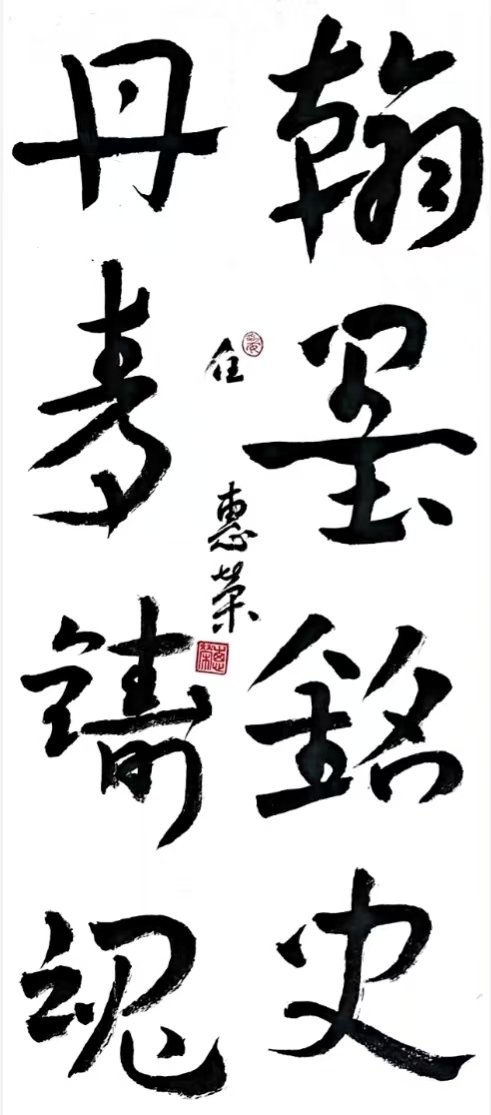 翰墨銘史
丹青鑄魂
任惠荣